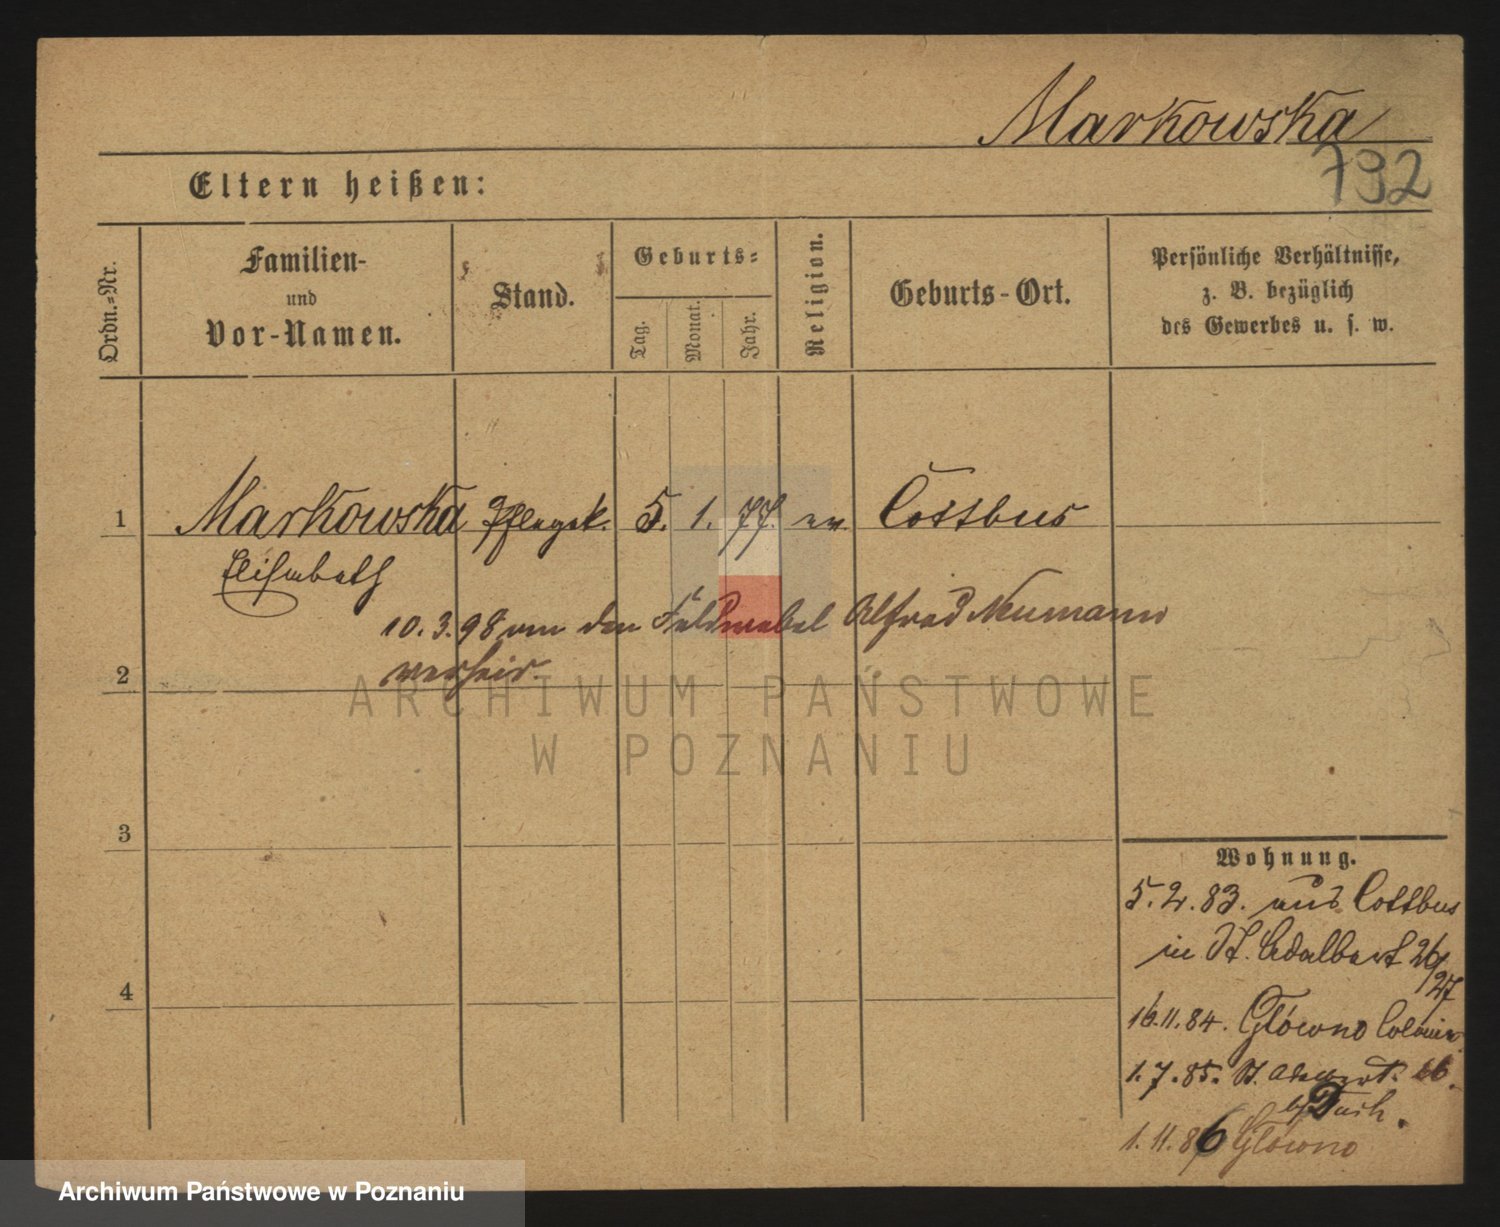 Markowska
792
Eltern heißen:
Ordn.=Nr.
Familien-
und
Vor-Namen.
Stand.
Geburts=
Tag.
Monat.
Jahr.
Religion.
Geburts-Ort.
Persönliche Verhältnisse,
z. B. bezüglich
des Gewerbes u. s. w.
1 Markowska Pflegek. 5. 1. 77. ev. Cottbus
Elisabeth
10.3.98 an den Feldwebel Alfred Neumann
verheir.
2
3
4
Wohnung.
5.2.83. aus Cottbus
in St. Adalbert 26/27
16.11.84. Główno Colonie
1.7.85. St. 26.
b/
1.11.86 Główno
ARCHIWUM PAŃSTWOWE
W POZNANIU
Archiwum Państwowe w Poznaniu